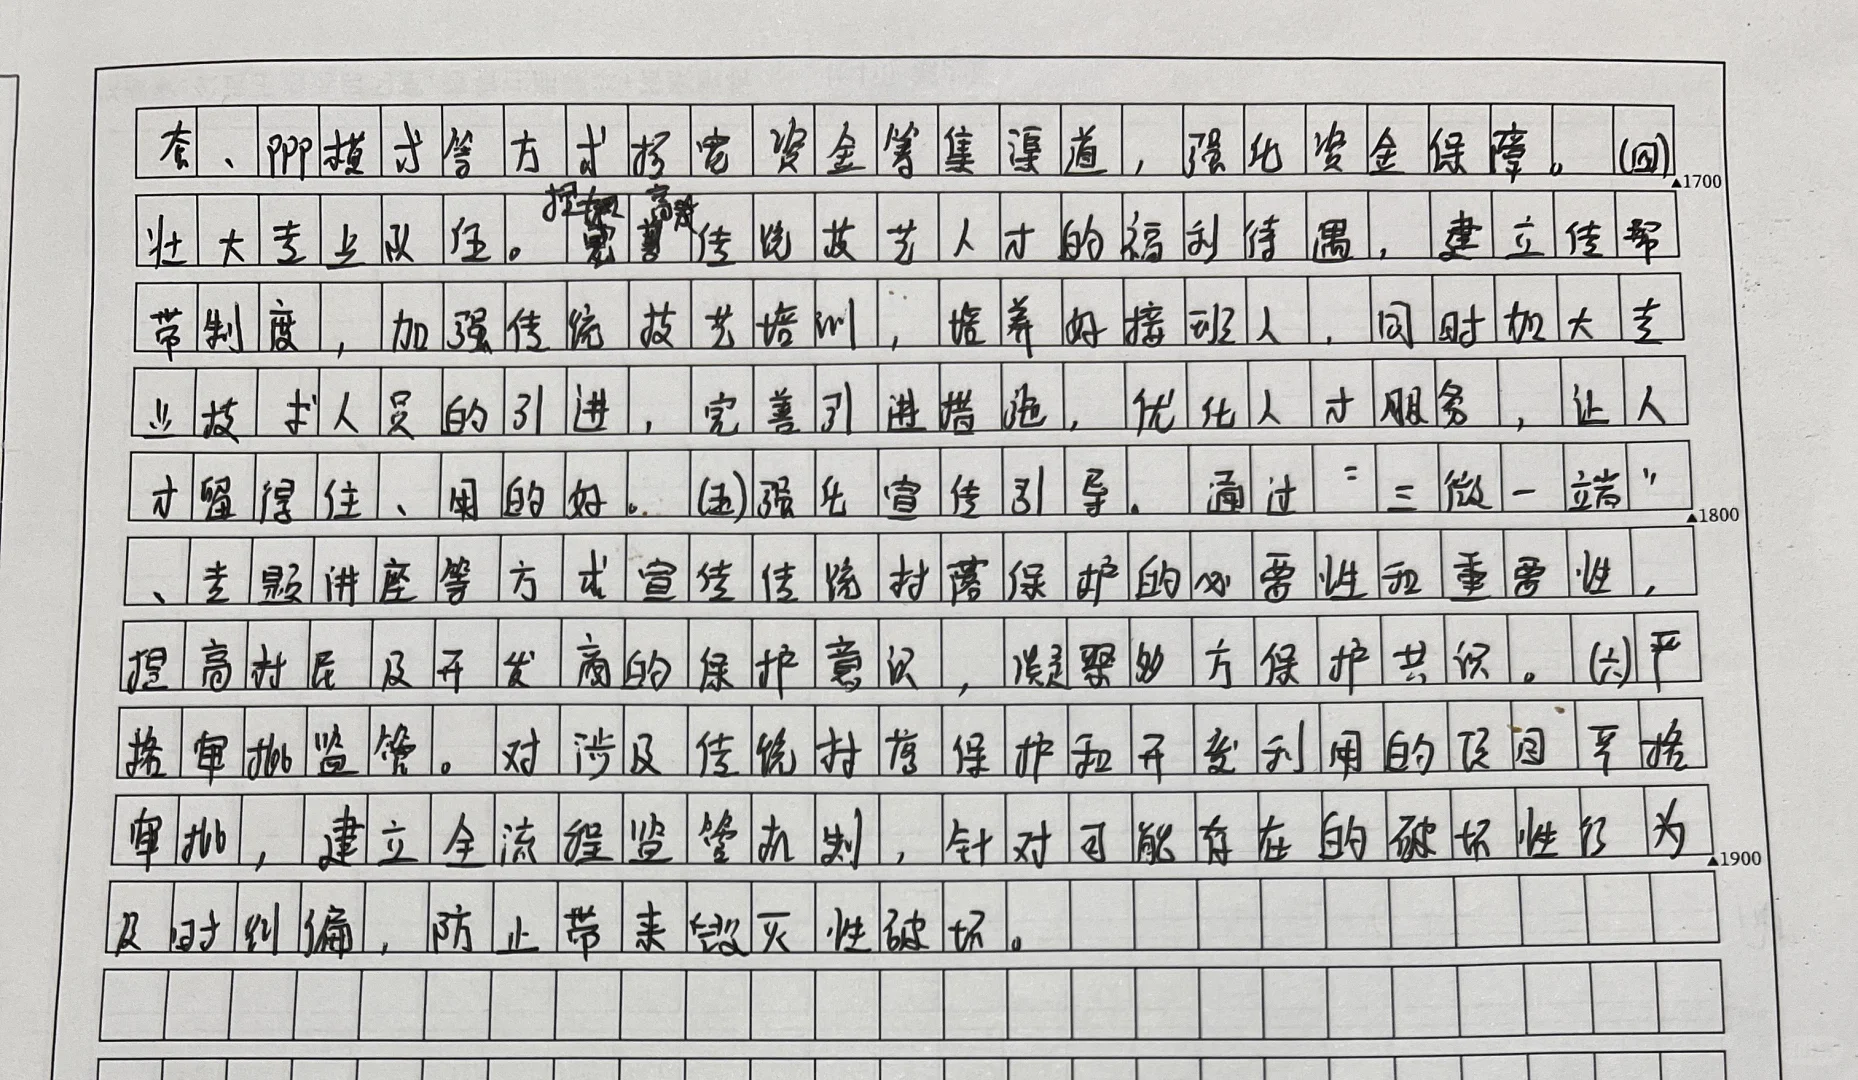 套、PPP模式等方式拓宽资金筹集渠道，强化资金保障。(四)
▲1700
提高
壮大专业队伍。传统技艺人才的福利待遇，建立传帮
带制度，加强传统技艺培训，培养好接班人，同时加大专
业技术人员的引进，完善引进措施，优化人才服务，让人
才留得住、用的好。(五)强化宣传引导。通过“三微一端”
▲1800
、专题讲座等方式宣传传统村落保护的必要性和重要性，
提高村民及开发商的保护意识，凝聚多方保护共识。(六)严
格审批监管。对涉及传统村落保护和开发利用的项目严格
审批，建立全流程监管机制，针对可能存在的破坏性行为
▲1900
及时纠偏，防止带来毁灭性破坏。